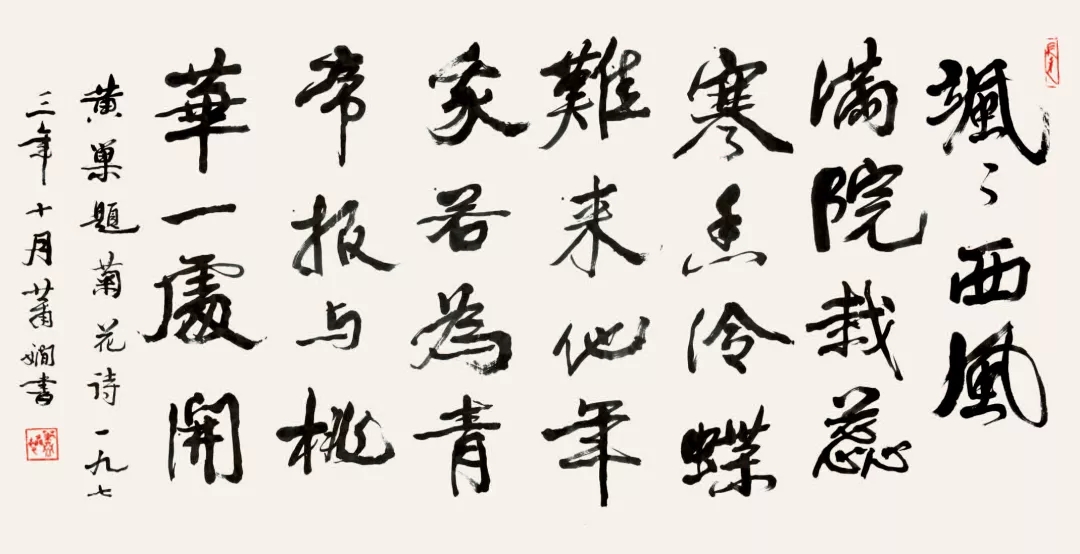 颯〻西風
滿院栽蕊
寒香冷蝶
難來他年
我若為青
帝報与桃
華一處開
黃巢題菊花詩一九七
三年十月蕭嫻書